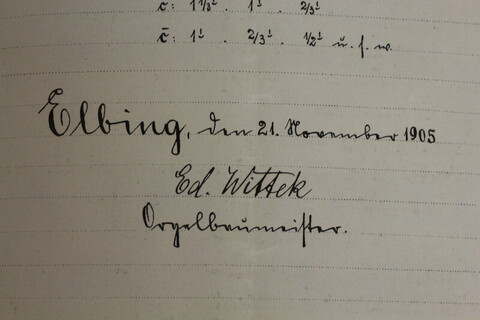 c: 1 1/3' . 1' . 2/3'
c̄: 1' . 2/3' . 1/2' u. s. w.
Elbing, den 21. November 1905
Ed. Wittek
Orgelbaumeister.